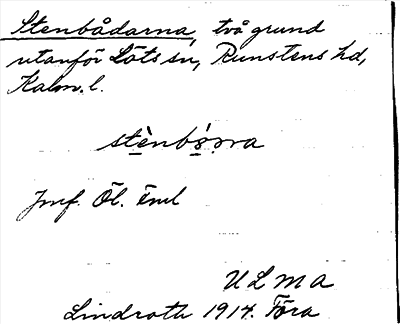 Stenbådarna, två grund
utanför Löts sn, Runstens hd,
Kalm. l.
stènbó̤rra
Jmf. Öl.
U L M A
Lindroth 1914. Föra